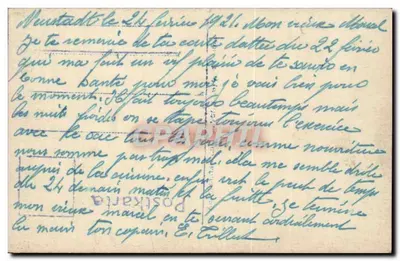 Neustadt le 24 fevrier 1921 Mon vieux Marcel
Je te remercie de ta carte dattée du 22 fevrier
qui ma fait un vif plaisir de te savoir en
bonne santé pour moi je vais bien pour
le moment. Il fait toujours beau temps mais
les nuits froides on tape toujours l'exercice
avec le sac comme nourriture
nous somme pas trop mal, elle me semble drôle
auprès de la cuisine, enfin
du 24 demain matin et la fuite. Je termine
mon vieux marcel en te serrant cordialement
la main ton copain. E.
Postkarte